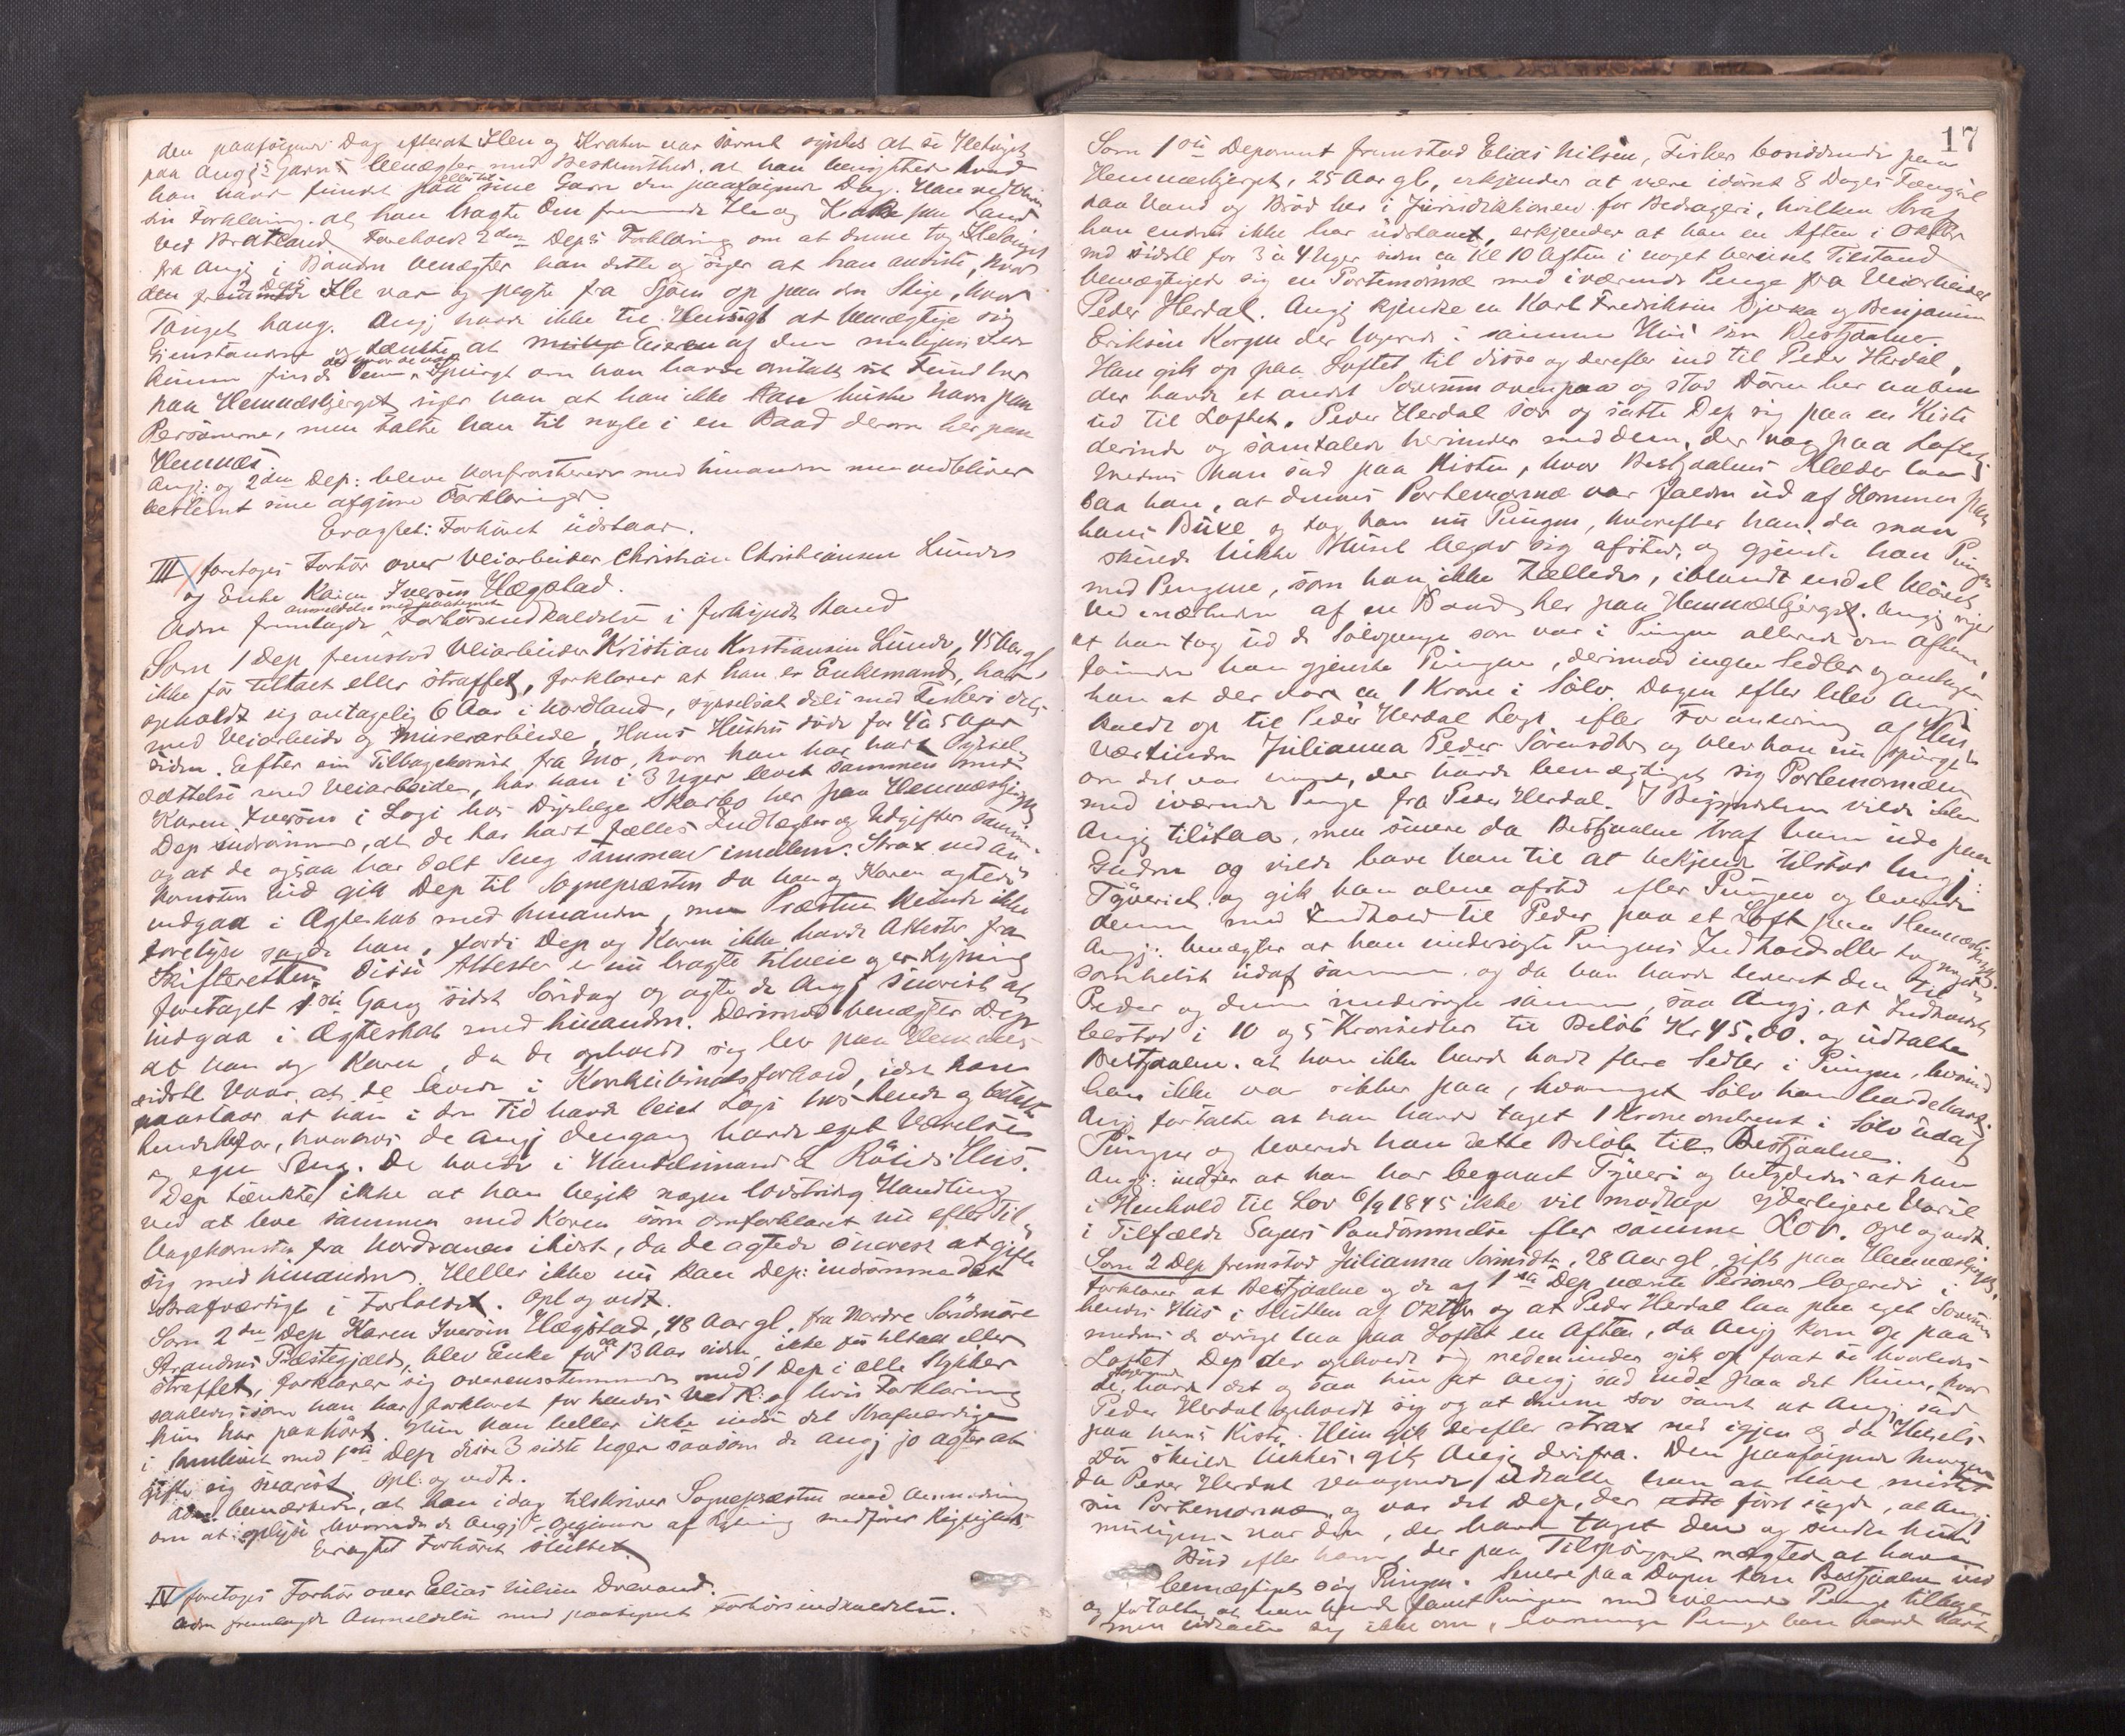 den paafölgende Dag efterat Ilen og Kraken var
paa Angj:s Garn benægter med Bestemthed, at han
han havde fundet paa eller ved sine Garn den paafölgende Dag. Han vedbliver
sin Forklaring, at han bragte den fremmede Ile og Krake paa Land
ved Bratland. Foreholdt 2den Dep:s Forklaring om at denne tog
fra Angj i Baaden benægter han dette og siger at han anviste, hvor
den fremmede Ile var og pegte fra Sjöen op paa den Skige, hvor
Tauget hang. Angj havde ikke til Hensigt at bemægtige sig
Gjenstandene og tænkte at Eieren af dem muligens selv
kunne finde dem. Spurgt om han havde omtalt sit Fund her
paa Hemnæsbjerget siger han at han ikke kan huske Navn paa
Personerne, men talte han til nogle i en Baad derom her paa
Hemnæs.
Angj: og 2den Dep: bleve konfronterede med hinanden men vedbliver
bestemt sine afgivne Forklaringer.
Eragtet: Forhöret udstaar.
III foretoges Forhör over Veiarbeider Christian Christiansen Lunde
og Enke Karen Iversen Hægstad.
Adm fremlagde anmeldelse med paategnet Forhörsindkaldelse i forkyndt Stand
Som 1 Dep fremstod Veiarbeider Kristian Kristiansen Lunde, 45 Aar gl
ikke för tiltalt eller straffet, forklarer at han er Enkemand, har
opholdt sig antagelig 6 Aar i Nordland, sysselsat dels med Fiskeri dels
med Veiarbeide og Murerarbeide. Hans Hustru döde for 4 à 5 Aar
siden. Efter sin Tilbagekomst fra Mo, hvor han har havt Syssel-
sættelse med Veiarbeide, har han i 3 Uger levet sammen med
Karen Iversen i Logi hos Dyrlæge Skarbo her paa Hemnæsbjerget
Dep indrömmer, at de har havt fælles Indtægter og Udgifter sammen
og at de ogsaa har delt Seng sammen imellem. Strax ved An-
komsten hid gik Dep til Sognepræsten da han og Karen agtede
indgaa i Ægteskab med hinanden, men Præsten kunde ikke
foretage sagde han, fordi Dep og Karen ikke havde Attester fra
Skifteretten. Disse Attester er nu bragte tilveie og er Lysning
foretaget 1ste Gang sidst Söndag og agte de Angj snarest at
indgaa i Ægteskab med hinanden. Derimod benægter Dep
at han og Karen, da de opholdt sig her paa Hemnæs
sidste Vaar, at de levede i Konkubinatsforhold, idet han
paastaar at han i den Tid havde leiet Logi hos hende og betalte
hende, hvorhos de Angj dengang havde eget Værelse
og egen Seng. De boede i Handelsmand Rölids Hus.
Dep tænkte ikke at han begik nogen lovstridig Handling
ved at leve sammen med Karen som omforklaret nu efter Til-
bagekomsten fra Nordranen ihöst, da de agtede snarest at gifte
sig med hinanden. Heller ikke nu kan Dep: indrömme det
Strafværdige i Forholdet. Opl og vedt.
Som 2den Dep Karen Iversen Hægstad, 48 Aar gl. fra Nordre Söndmöre
Strandens Præstegjæld, blev Enke for ca 13 Aar siden, ikke för tiltalt eller
straffet, forklarer sig overensstemmende med 1 Dep i alle Stykker
saaledes som han har forklaret for hendes Ved: og hvis Forklaring
hun har paahört. Hun kan heller ikke indse det Strafværdige
i Samlivet med 1ste Dep disse 3 sidste Uger saasom de Angj jo agter at
gifte sig snarest. Opl: og vedt.
Adm: bemærkede, at han idag tilskriver Sognepræsten med Anmodning
om at oplyse hvorvidt de Angj:s Opgivende af Lysning medförer Rigtighed.
Eragtet Forhöret sluttet.
IV foretoges Forhör over Elias Nilsen Drevand.
Adm fremlagde Anmeldelse med paategnet Forhörsindkaldelse.
17
Som 1ste Deponent fremstod Elias Nilsen, Fisker boende paa
Hemnæsbjerget, 25 Aar gl., erkjender at være idömt 8 Dages Fængsel
paa Vand og Bröd her i Jurisdiktionen for Bedrageri, hvilken Straf
han endnu ikke har udstaaet, erkjender at han en Aften i Oktbr
md sidstl for 3 à 4 Uger siden ca Kl 10 Aften i noget beruset Tilstand
bemægtigede sig en Portemonnæ med iværende Penge fra Veiarbeider
Peder Herdal. Angj kjendte en Karl Fredriksen Bjerka og Benjamin
Eriksen Korgen der logerede i samme Hus som Bestjaalne.
Han gik op paa Loftet til disse og derefter ind til Peder Herdal,
der havde et andet Soverum ovenpaa og stod Dören her aaben
ud til Loftet. Peder Herdal sov og satte Dep sig paa en Kiste
derinde og samtalede herinder med dem, der laa paa Loftet
Medens han sad paa Kisten, hvor Bestjaalnes Klæder laa
saa han, at dennes Portemonnæ var falden ud af Lommen paa
hans Buxe og tog han nu Pungen, hvorefter han, da man
skulde lukke Huset begav sig afsted, og gjemte han Pungen
med Pengene, som han ikke tællede, iblandt endel
ved nærheden af en Baad her paa Hemnæsbjerget. Angj siger
at han tog ud de Sölvpenge som var i Pungen allerede om Aftenen
förinden han gjemte Pungen, derimod ingen Sedler og antager
han at der var ca 1 Krone i Sölv. Dagen efter blev Angj
kaldt op til Peder Herdal Logi efter Foranledning af Hus-
værtinden Julianna Peder Sörensdtr og blev han nu spurgt
om det var ham, der havde bemægtiget sig Portemonnæen
med iværende Penge fra Peder Herdal. I Begyndelsen vilde ikke
Angj tilstaa, men senere da Bestjaalne traf ham ude paa
Gaden og vilde have han til at bekjende tilstod Angj:
Tyveriet og gik han alene afsted efter Pungen og leverede
denne med Indhold til Peder paa et Loft paa Hemnæsbjerget.
Angj: benægter at han undersögte Pungens Indhold eller tog noget
somhelst udaf samme og da han havde leveret den til
Peder og denne undersögte samme, saa Angj, at Indholdet
bestod i 10 og 5 Kronesedler til Belöb Kr 45,00. og udtalte
Bestjaalne, at han ikke havde havt flere Sedler i Pungen, hvorimod
han ikke var sikker paa, hvormeget Sölv han havde havt.
Angj fortalte at han havde taget 1 Krone omtrent i Sölv udaf
Pungen og leverede han dette Belöb til Bestjaalne.
Angj: indser at han har begaaet Tyveri og betydedes at han
i Henhold til Lov 6/9 1845 ikke vil modtage yderligere Varsel
i Tilfælde Sagens Paadömmelse efter samme Lov. Opl og vedt.
Som 2 Dep fremstod Julianna Sörensdtr, 28 Aar gl, gift paa Hemnæsbjerget,
forklarer at Bestjaalne og de af 1ste Dep nævnte Personer logerede i
hendes Hus i Slutten af Oktbr og at Peder Herdal laa paa eget Soverum
medens de övrige laa paa Loftet en Aften, da Angj kom op paa
Loftet. Dep der opholdt sig nedenunder gik op forat se hvorledes
de logerende havde det og saa hun at Angj sad inde paa det Rum, hvor
Peder Herdal opholdt sig og at denne sov samt at Angj sad
paa hans Kiste. Hun gik derefter strax ned igjen og da Husets
Dör skulde lukkes, gik Angj derifra. Den paafölgende Morgen
da Peder Herdal vaagnede udtalte han at have mistet
sin Portemonnæ, og var det Dep, der först sagde, at Angj
muligens var den, der havde taget den og sendte hun
Bud efter ham, der paa Tilspörgsel nægtede at have
bemægtiget sig Pungen. Senere paa Dagen kom Bestjaalne ind
og fortalte at han havde faaet Pungen med iværende Penge tilbage
men udtalte sig ikke om, hvormange Penge han havde havt